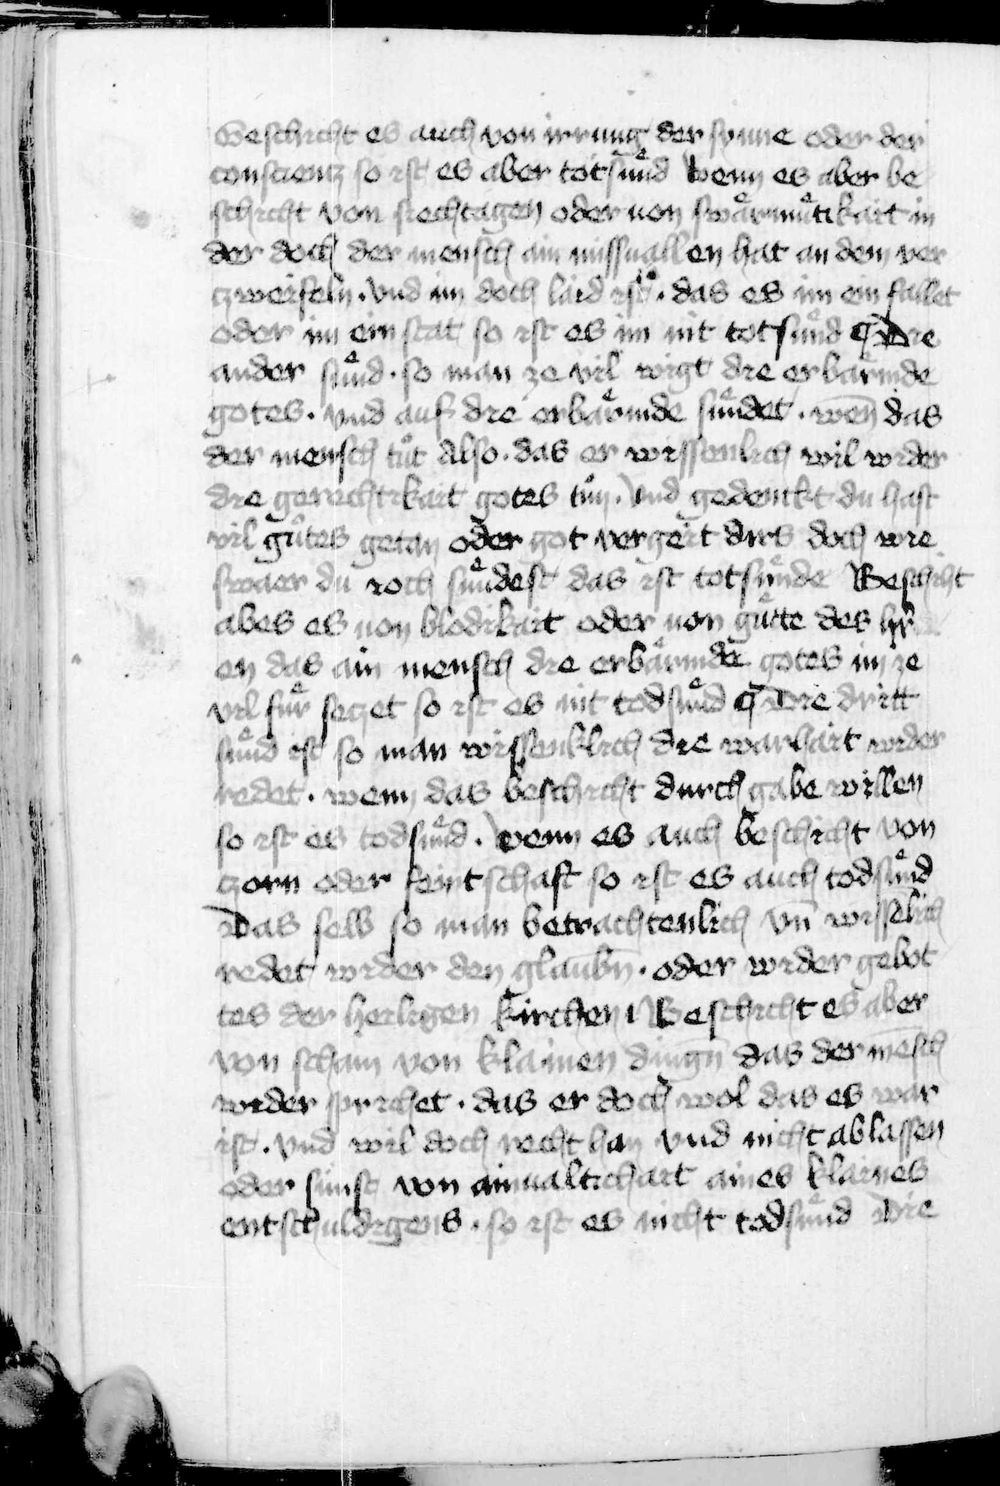 Beschicht es auch von irrung der synne oder der
conscientz so ist es aber totsuͤnd Wenn es aber be
schicht von siechtagen oder von swaͤrmuͤtikait in
der doch der mensch ain missuallen hat an dem ver
tzweifeln · Vnd im doch laid ist · das es im ein fallet
oder im ein stat so ist es im nit totsuͤnd ¶ Die
ander suͤnd · so man ze vil wigt die erbaͤrmde
gotes · vnd auf die erbaͤrmde suͤndet · wen̄ das
der mensch tuͦt Also · das er wissenlich wil wider
die gerechtikait gotes tuͦn · Vnd gedenckt du hast
vil guͦtes getan oder got vergeit dirs doch wie
swaer du ioch suͤndest das ist totsuͤnde Beschiht
abes es von blodikait oder von guͤtte des hr̄
en das ain mensch die erbaͤrmde gotes im ze
vil fuͤr setzet so ist es nit todsuͤnd ¶ Die dritt
suͤnd ist so man wissenklich die warhait wider
redet · wenn das beschicht durch gabe willen
so ist es todsuͤnd · Wenn es auch beschicht von
tzorn oder feintschaft so ist es auch todsuͤnd
Das selb so man betrachtenlich vn̄ wissēlich
redet wider den glaubn̄ · oder wider gebot
tes der heiligen kirchen Beschicht es aber
von scham von klainen dingn̄ das der mēsch
wider sprichet · das er doch wol das es war
ist · Vnd wil doch recht han vnd nicht ablassen
oder sunst von ainualtichait aines klaines
entschuldigens · so ist es nicht todsuͤnd Die